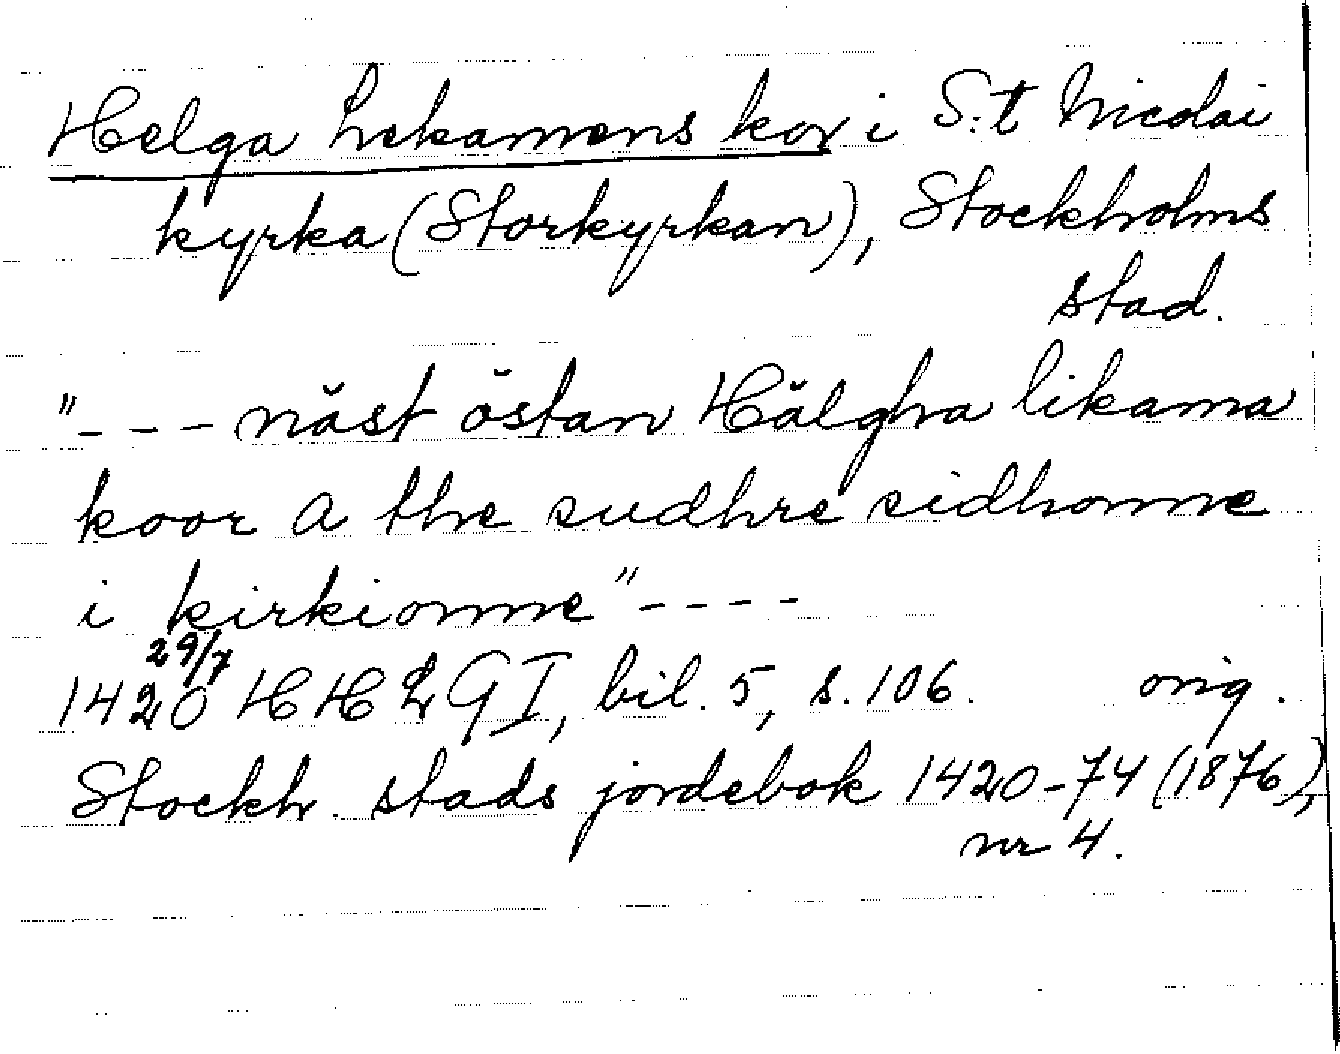 Helga Lekamens kor i S:t Nicolai
kyrka (Storkyrkan), Stockholms
stad.
"--- näst östan Hälgha likama
koor a the sudhre sidhonne
i kirkionne" ----
29/7
1420 HHLG I, bil. 5, s. 106. orig.
Stockh. stads jordebok 1420-74 (1876),
nr 4.